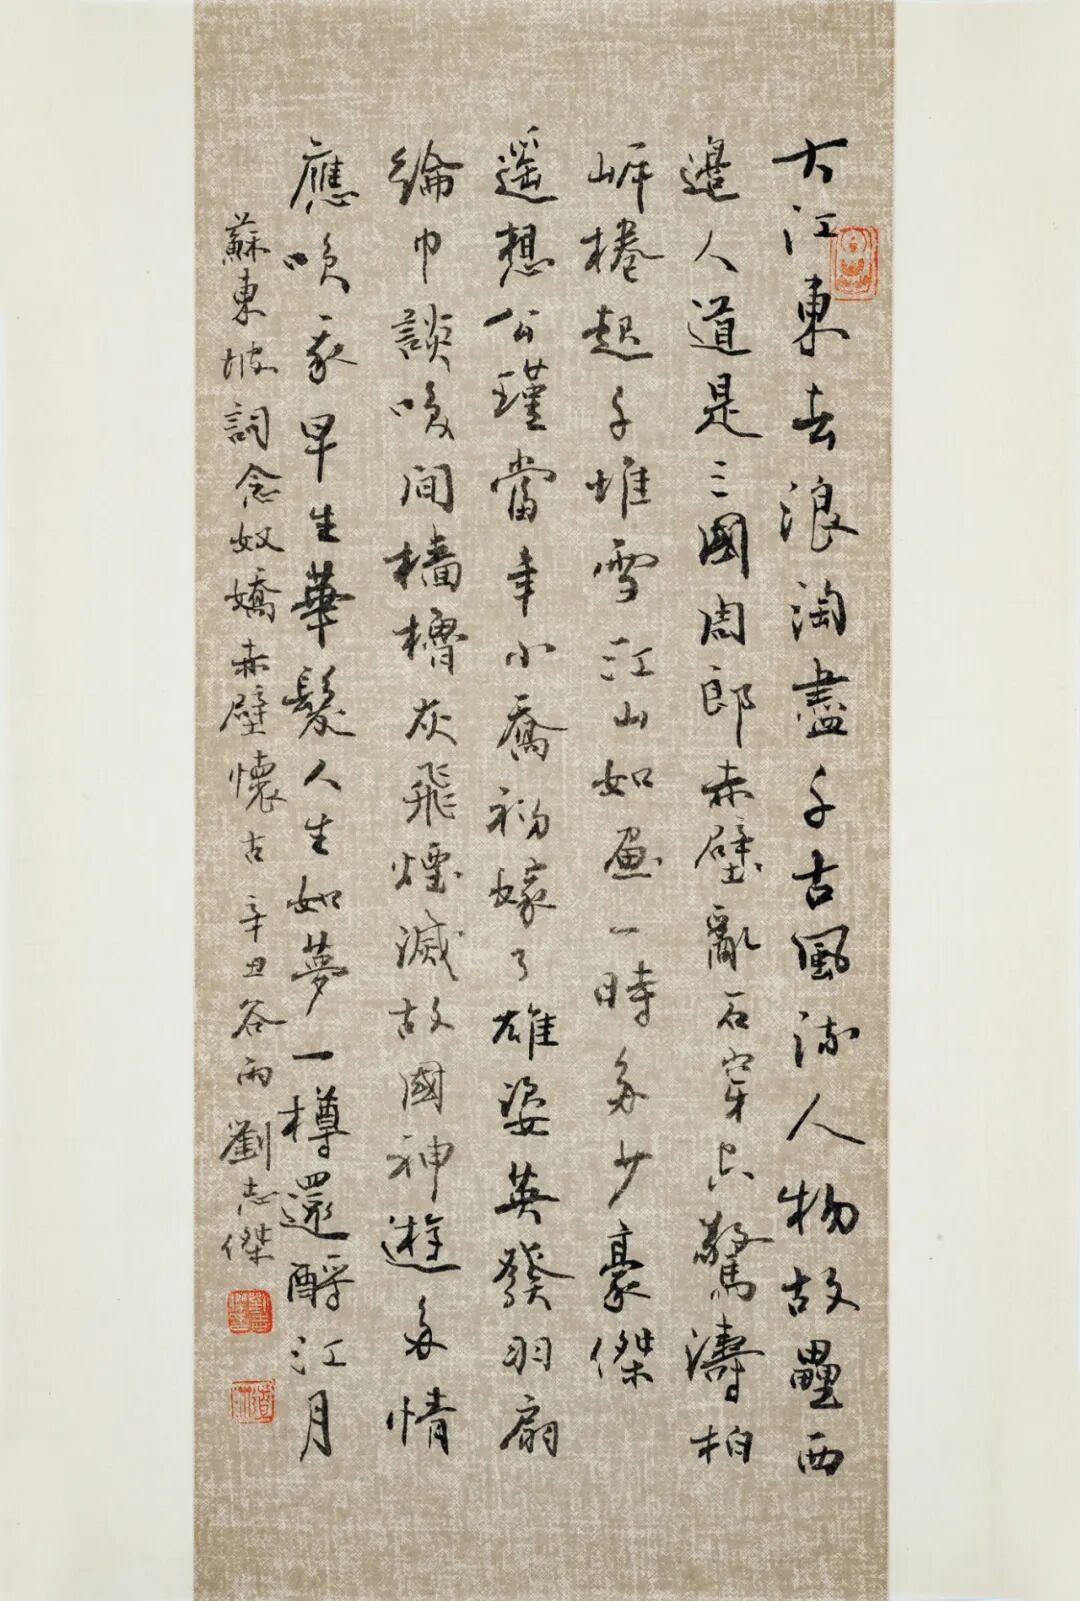 大江東去浪淘盡千古風流人物故壘西
邊人道是三國周郎赤壁亂石穿空驚濤拍
岸捲起千堆雪江山如畫一時多少豪傑
遥想公瑾當年小喬初嫁了雄姿英發羽扇
綸巾談笑間檣櫓灰飛煙滅故國神遊多情
應笑我早生華髮人生如夢一樽還酹江月
蘇東坡詞念奴嬌赤壁懷古辛丑谷雨劉志傑